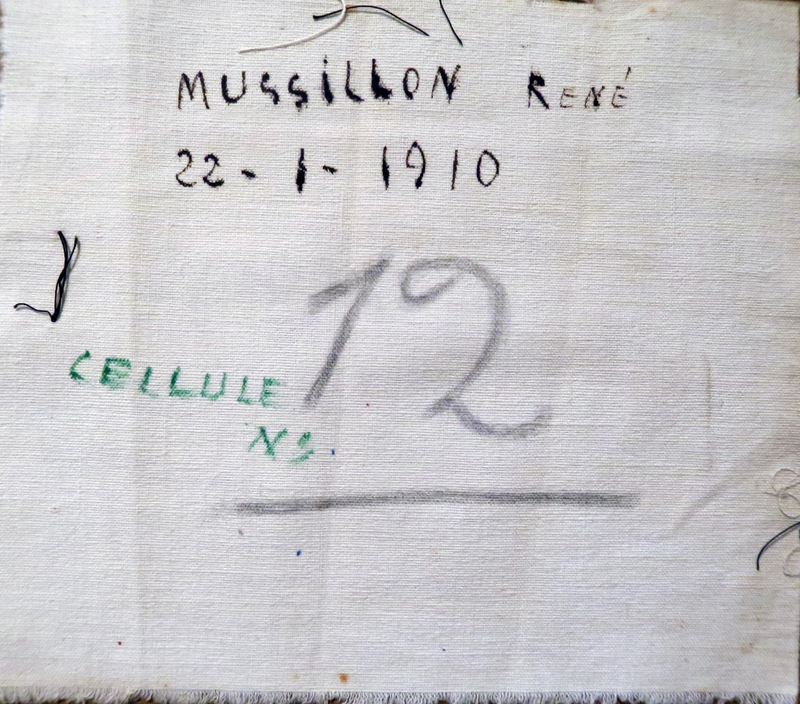 MUSSILLON RENÉ
22-1-1910
12
CELLULE
N3.